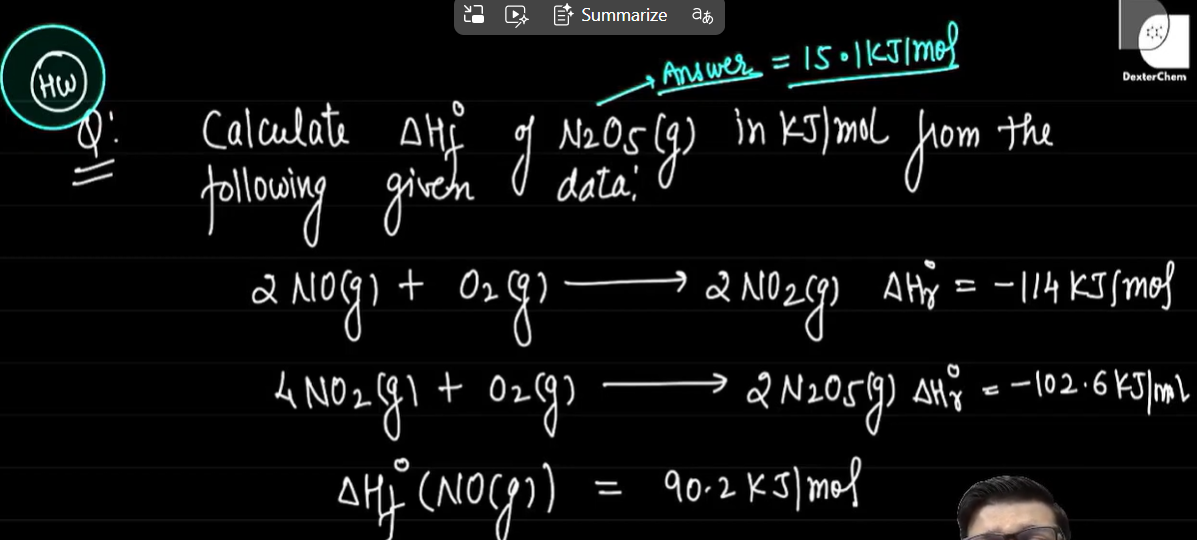 Summarize
HW
Answer = 15.1 KJ/mol
DexterChem
Q: Calculate ΔHf° of N2O5(g) in KJ/mol from the
following given data:
2 NO(g) + O2(g) ⟶ 2 NO2(g) ΔHr° = -114 KJ/mol
4 NO2(g) + O2(g) ⟶ 2 N2O5(g) ΔHr° = -102.6 KJ/mol
ΔHf° (NO(g)) = 90.2 KJ/mol